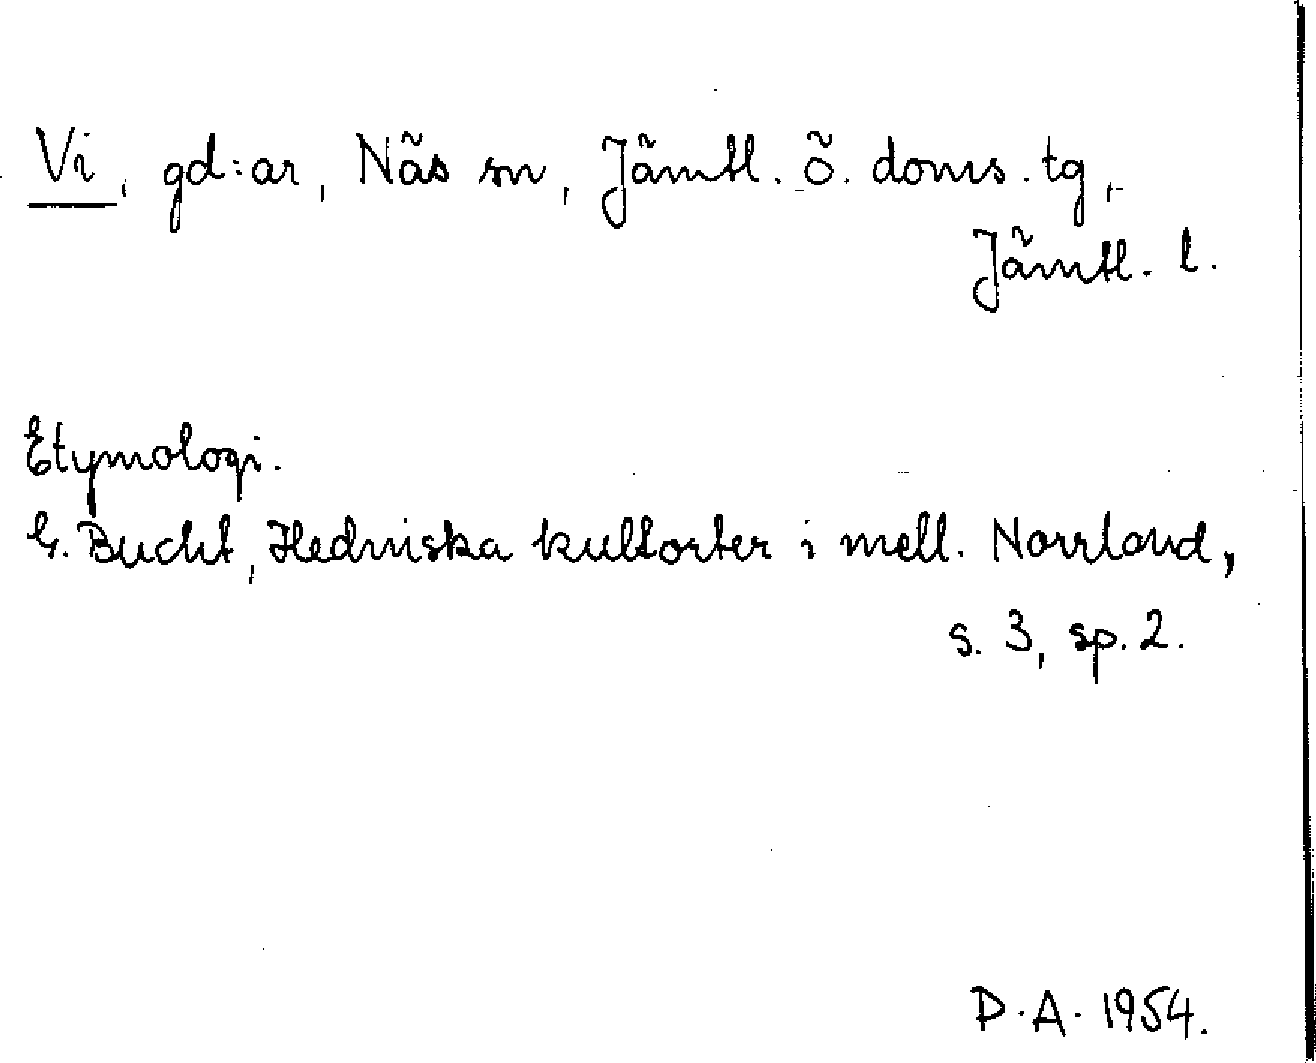 Vi, gd:ar, Näs sn, Jämtl. ö. doms. tg,
Jämtl. l.
Etymologi.
G. Bucht, Hedniska kultorter i mell. Norrland,
s. 3, sp. 2.
D.A. 1954.